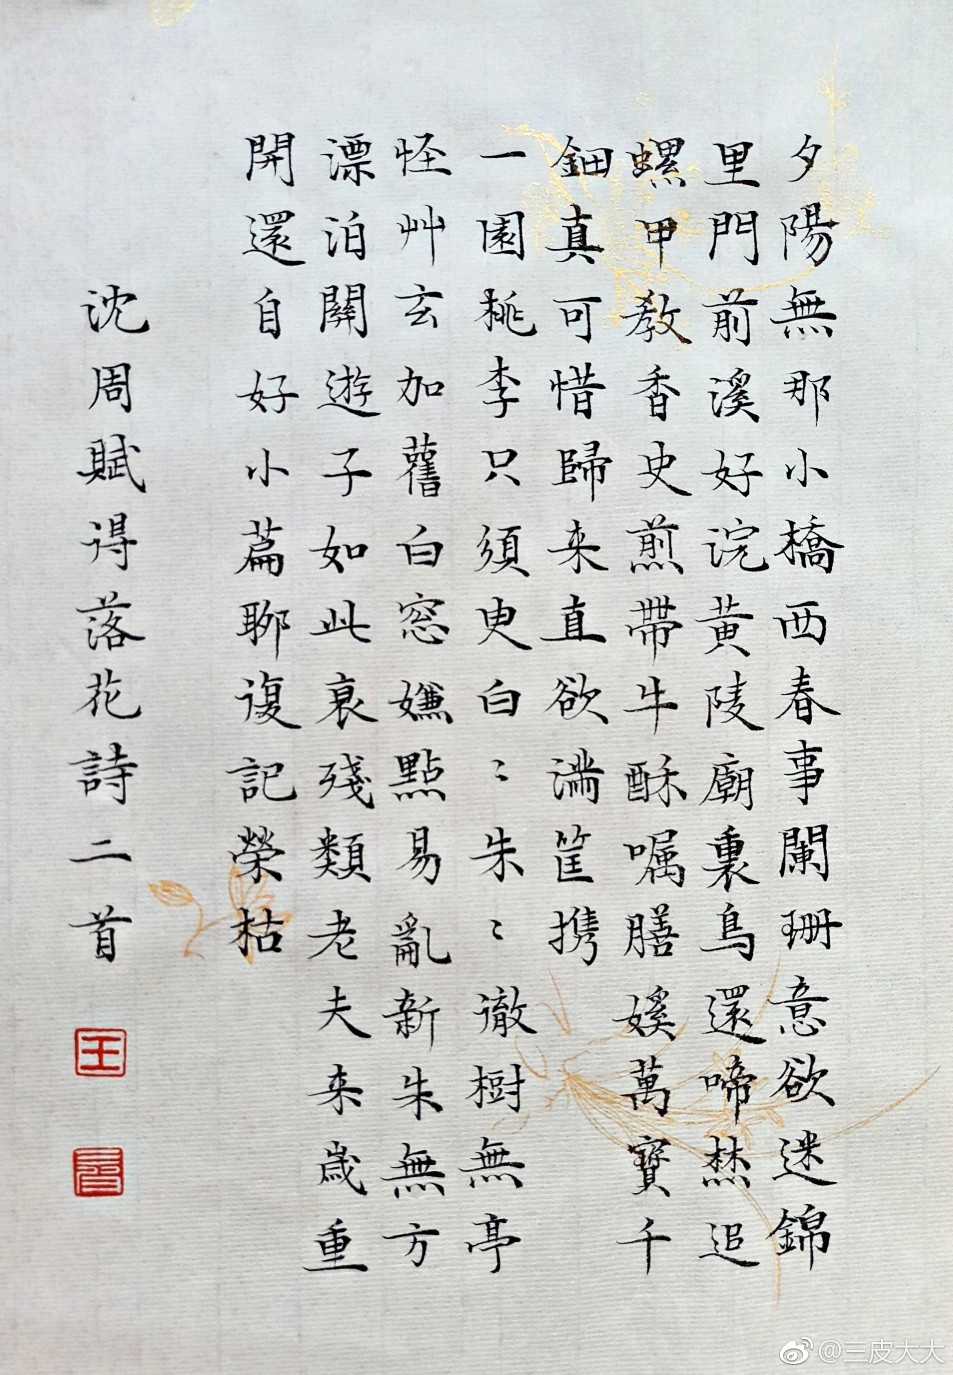 夕陽無那小橋西春事闌珊意欲迷錦
里門前溪好浣黃陵廟裏鳥還啼焚追
螺甲教香史煎帶牛酥囑膳媛萬寶千
鈿真可惜歸来直欲滿筐携
一園桃李只須臾白〻朱〻徹樹無亭
怪艸玄加舊白窓嫌點易亂新朱無方
漂泊關遊子如此衰殘類老夫来歲重
開還自好小篇聊復記榮枯
沈周賦得落花詩二首
王
@三皮大大